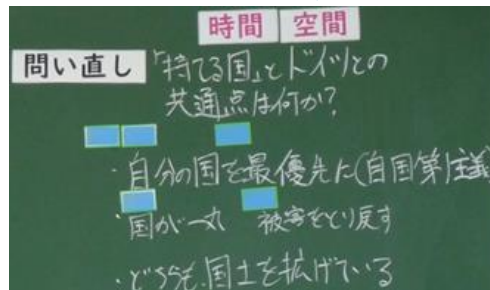 時間 空間
問い直し 「持てる国」とドイツとの
共通点は何か?
・自分の国を最優先に(自国第一主義
・国が一丸 被害をとり反す
・どちらも国土を拡げている